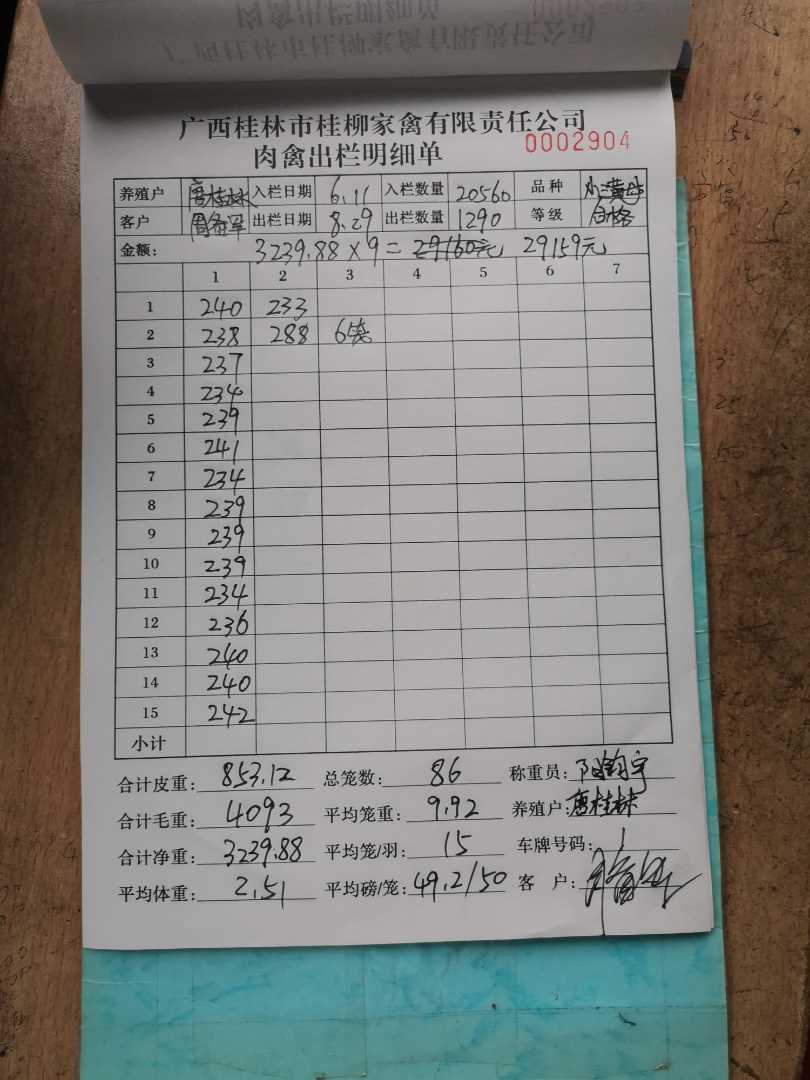 广西桂林市桂柳家禽有限责任公司
肉禽出栏明细单 0002904
养殖户 唐桂林 入栏日期 6.11 入栏数量 20560 品种 小三黄母
客户 出栏日期 8.29 出栏数量 1290 等级 合格
金额: 3239.88×9=29160元 29159元
1 2 3 4 5 6 7
1 240 233
2 238 288 6笼
3 237
4 234
5 239
6 241
7 234
8 239
9 239
10 239
11 234
12 236
13 240
14 240
15 242
小计
合计皮重: 853.12 总笼数: 86 称重员:
合计毛重: 4093 平均笼重: 9.92 养殖户: 唐桂林
合计净重: 3239.88 平均笼/羽: 15 车牌号码:
平均体重: 2.51 平均磅/笼: 49.2/50 客 户: